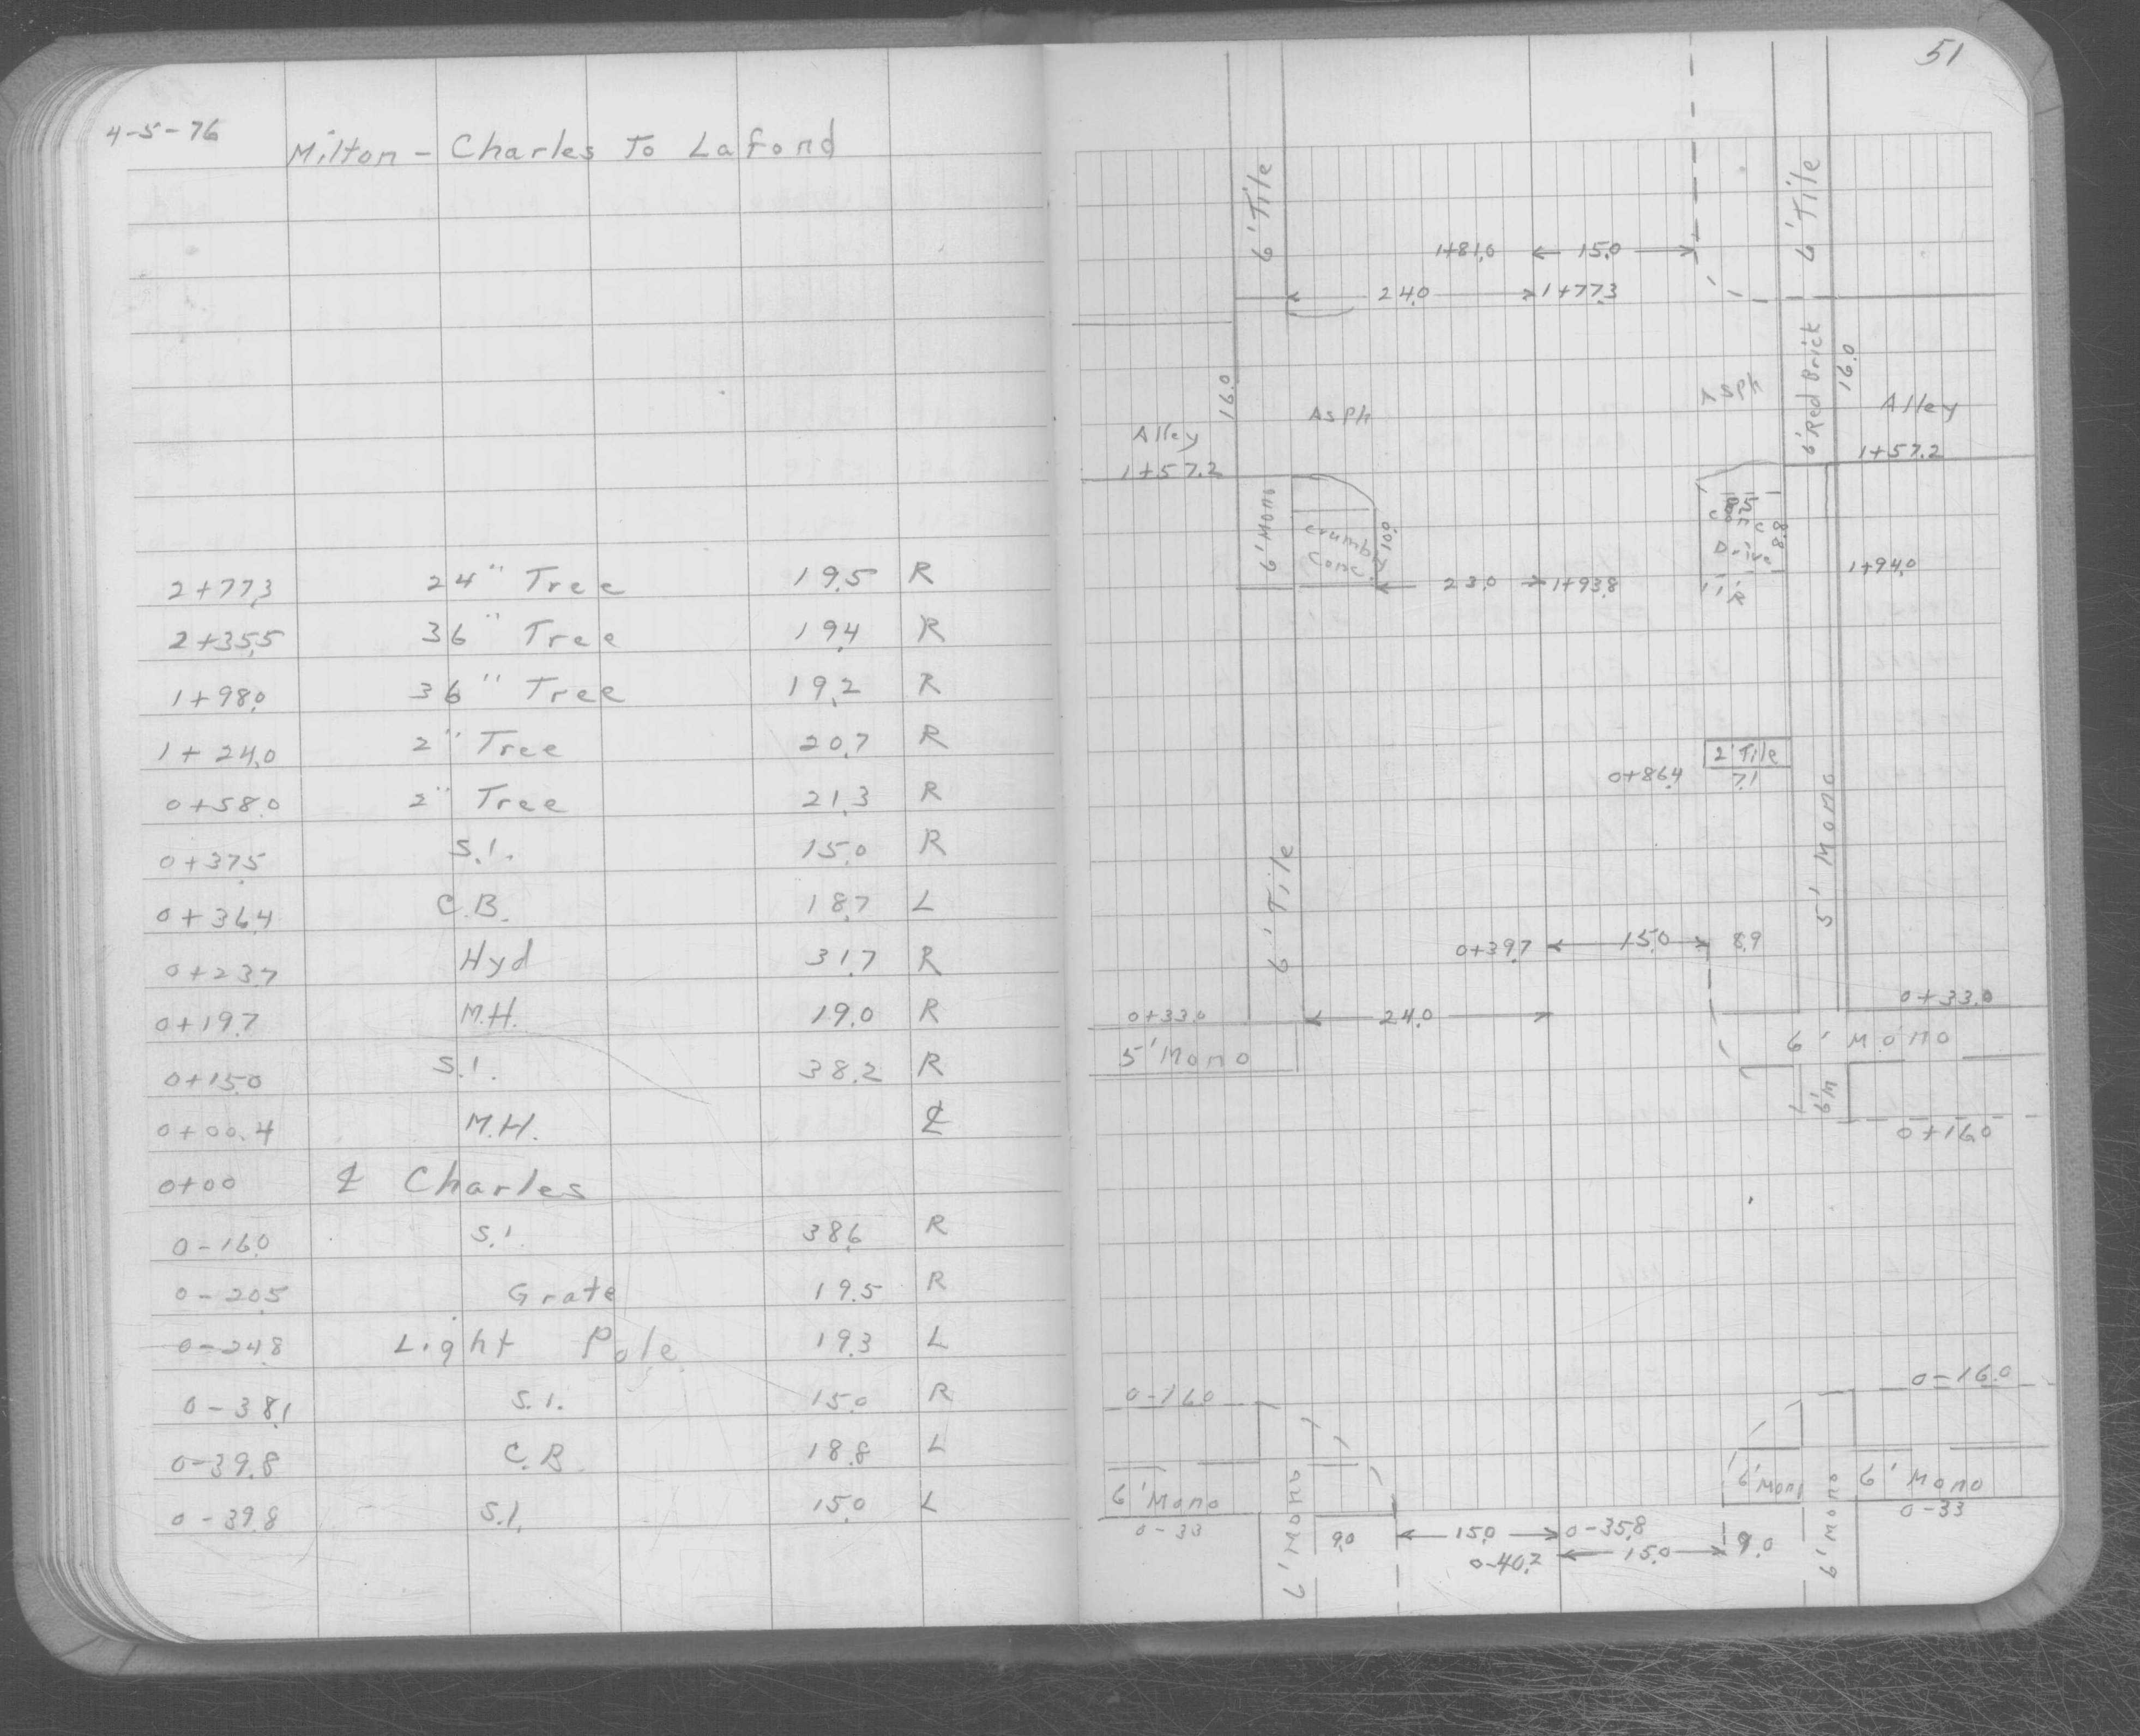 4-5-76 Milton - Charles To Lafond
2+77.3 24" Tree 19.5 R
2+35.5 36" Tree 19.4 R
1+98.0 36" Tree 19.2 R
1+24.0 2" Tree 20.7 R
0+58.0 2" Tree 21.3 R
0+37.5 S.I. 15.0 R
0+36.4 C.B. 18.7 L
0+23.7 Hyd 31.7 R
0+19.7 M.H. 19.0 R
0+15.0 S.I. 38.2 R
0+00.4 M.H. ℄
0+00 ℄ Charles
0-16.0 S.I. 38.6 R
0-20.5 Grate 19.5 R
0-24.8 Light Pole 19.3 L
0-38.1 S.I. 15.0 R
0-39.8 C.B. 18.8 L
0-39.8 S.I. 15.0 L
51
6' Tile
6' Tile
1+81.0 15.0
24.0 1+77.3
6' Red Brick
16.0
16.0
Asph
Asph
Alley
1+57.2
Alley
1+57.2
6' Mono
Crumbly
Conc.
10.0
23.0 1+93.8
Conc
Drive
8.8
1+94.0
2' Tile
0+86.4 7.1
5' Mono
6' Tile
0+39.7 15.0 8.9
0+33.0 24.0 0+33.0
5' Mono
6' Mono
6' M
0+16.0
0-16.0
0-16.0
6' Mono
0-33
6' Mono
9.0 15.0 0-35.8
0-40.2 15.0 9.0
6' Mono
6' Mono
6' Mono
0-33